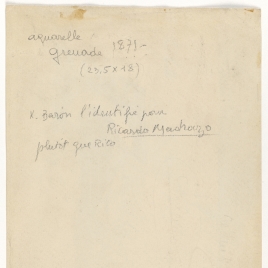 aquarelle
Grenade 1871-
(25,5 x 18)
X. Barón l'identifie pour
Ricardo Madrazo
plutôt que Rico